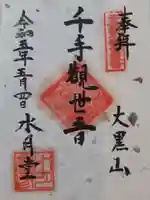 奉拜
大黒山
千手觀世音
水月堂
令和五年五月四日